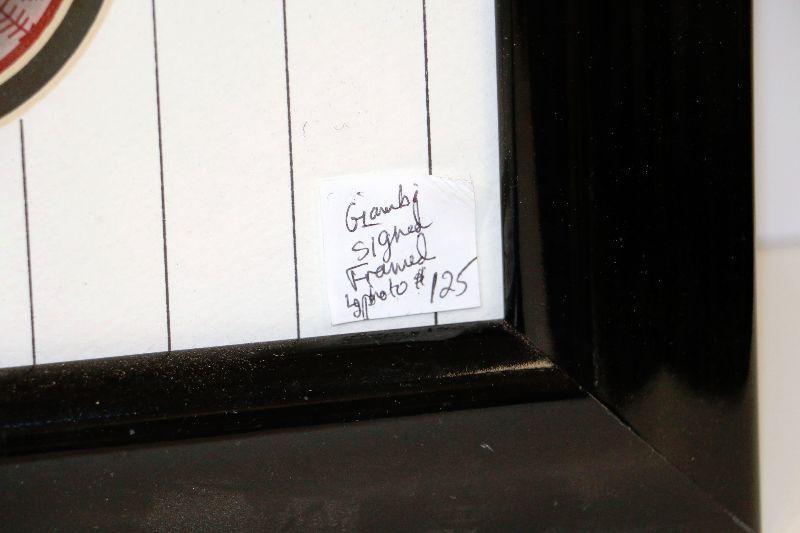 Giambi
signed
Framed
Lg photo $125